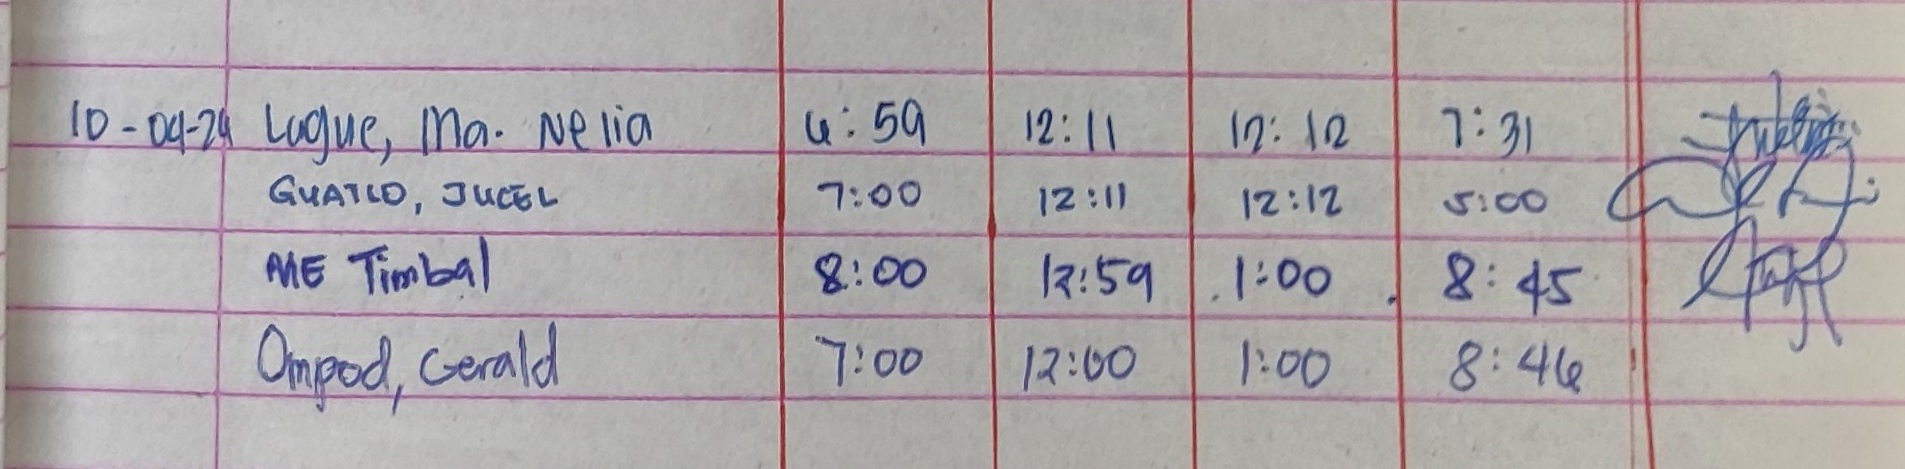 10-09-24 Lugue, Ma. Nelia 6:59 12:11 12:12 7:31
GUATLO, JUCEL 7:00 12:11 12:12 5:00
ME Timbal 8:00 12:59 1:00 8:45
Ompod, Gerald 7:00 12:00 1:00 8:46